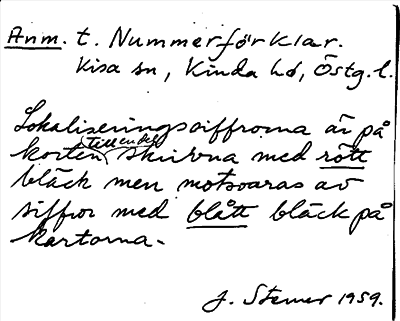 Anm. t. Nummerförklar.
Kisa sn, Kinda hd, Östg. l.
Lokaliseringssiffrorna är på
korten (till en del) skrivna med rött
bläck men motsvaras av
siffror med blått bläck på
kartorna.
J. Stemer 1959.